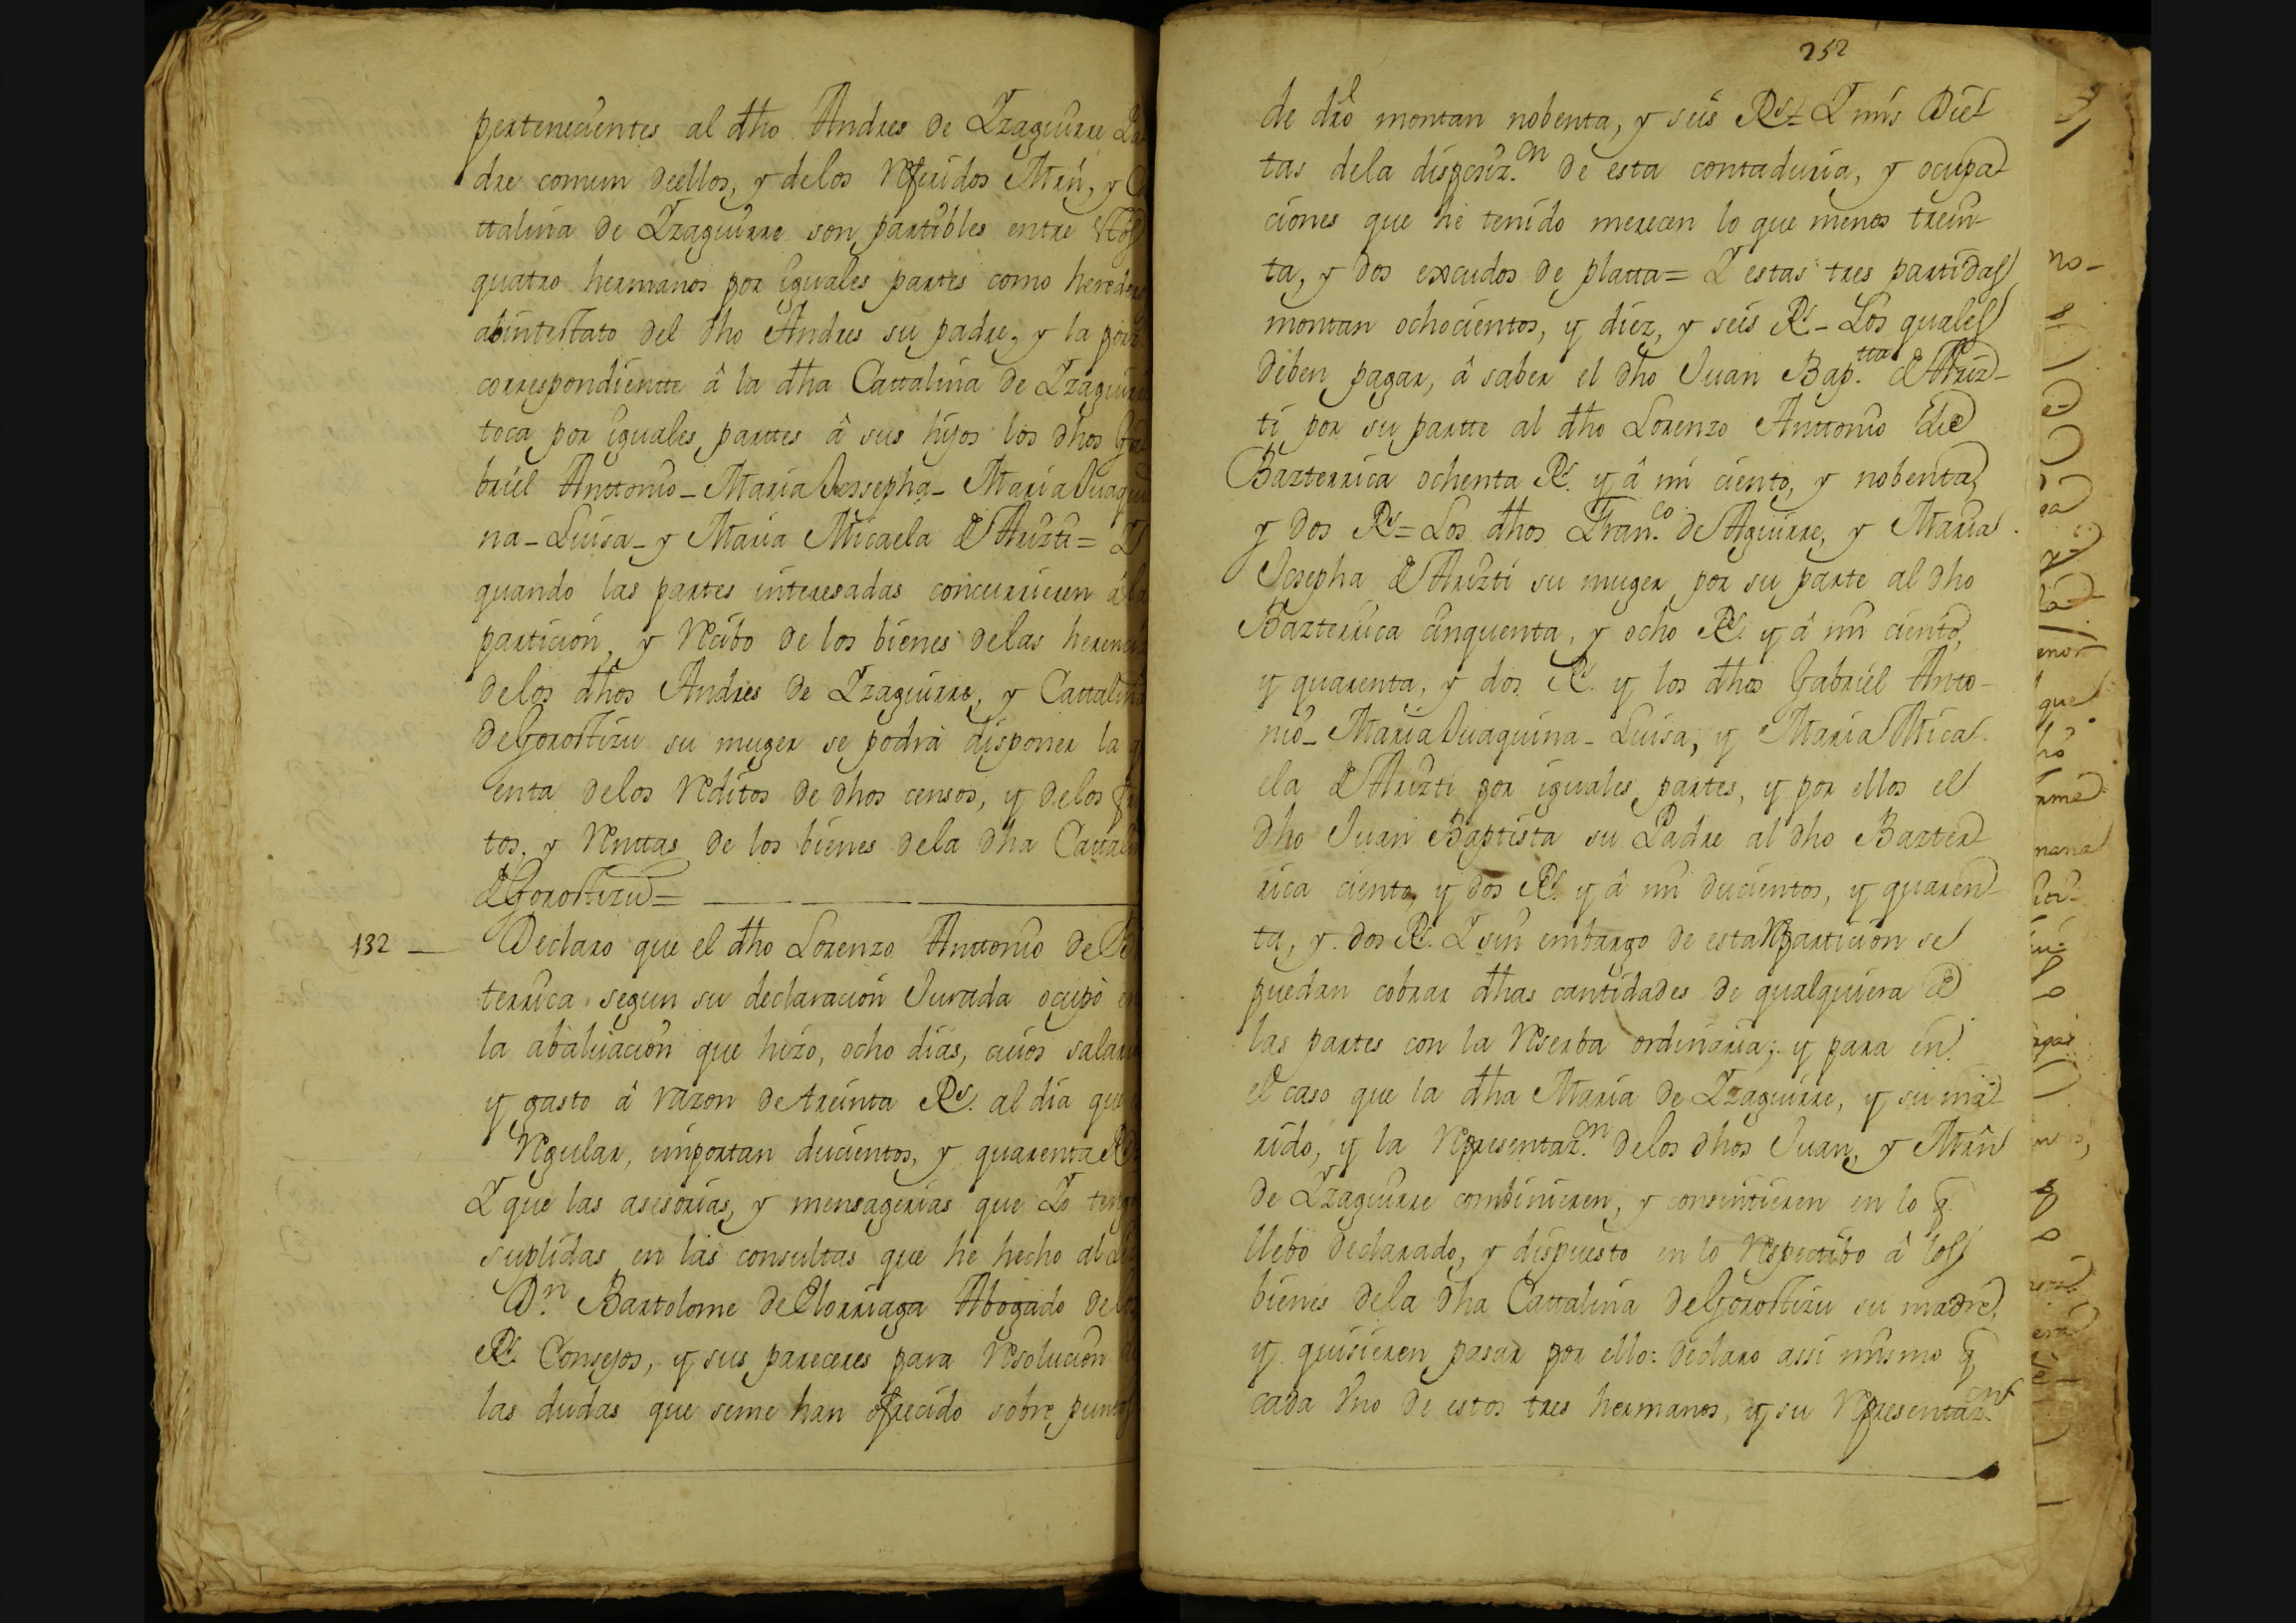 pertenecientes al dho Andres de Yzaguirre Pa
dre comun deellos, y delos Referidos Mrñ, y Ca
ttalina de Yzaguirre son partibles entre
quatro hermanos por iguales partes como heredero
abintestato del dho Andres su padre, y la porz
correspondientte â la dha Cattalina de Yzaguirre
toca por iguales parttes â sus hijos los dhos Ga
briel Anttonio - Maria Jossepha - Maria Juaqui
na - Luisa - y Maria Micaela de Arizti = Y
quando las partes interesadas concurrieren â la
particion, y Recibo de los bienes delas herencia
delos dhos Andres de Yzaguirre, y Cattalina
de Gorostizu su muger se podrà disponer la q
enta delos Reditos de dhos censos, y delos fru
tos, y Renttas de los bienes dela dha Cattali
de Gorostizu =
132 - Declaro que el dho Lorenzo Anttonio de Ba
terrica segun su declaracion Jurada ocupò en
la abaluacion que hizo, ocho dias, cuios salari
y gasto â razon de treinta Rs. al dia que
Regular, importan ducientos, y quarenta Rs
Y que las asesorias, y mensagerias que Yo tengo
suplidas en las consultas que he hecho al
Dn. Bartolome de Elorriaga Abogado de los
Rs. Consejos, y sus pareceres para Resolucion de
las dudas que seme han ofrecido sobre puntos
252
de dro montan nobenta, y seis Rs = Y mis Diet
tas dela disposiz.on de esta contaduria, y ocupa
ciones que he tenido merecen lo que menos trein-
ta, y dos excudos de platta = Y estas tres partidas
montan ochocientos, y diez, y seis Rs - Los quales
deben pagar, â saber el dho Juan Bap.tta de Ariz-
ti por su partte al dho Lorenzo Anttonio de
Bazterrica ochenta Rs. y â mi ciento, y nobenta,
y dos Rs = Los dhos Fran.co de Aguirre, y Maria
Josepha de Arizti su muger por su parte al dho
Bazterrica cinquenta, y ocho Rs. y â mi ciento,
y quarenta, y dos Rs. y los dhos Gabriel Anto-
nio - Maria Juaquina - Luisa, y Maria Mica
ela de Arizti por iguales partes, y por ellos el
dho Juan Baptista su Padre al dho Bazter
rica ciento, y dos Rs. y â mi ducientos, y quaren
ta, y dos Rs. Y sin embargo de esta Reparticion se
puedan cobrar dhas cantidades de qualquiera de
las partes con la Reserba ordinaria; y para en
el caso que la dha Maria de Yzaguirre, y su ma
rido, y la Representaz.on delos dhos Juan, y Mrñ
de Yzaguirre combinieren, y consintieren en lo q.
llebo declarado, y dispuesto en lo Respectibo â los
bienes dela dha Cattalina de Gorostizu su madre,
y quisieren pasar por ello: declaro assi mismo q
cada uno de estos tres hermanos, y su Representaz.ons